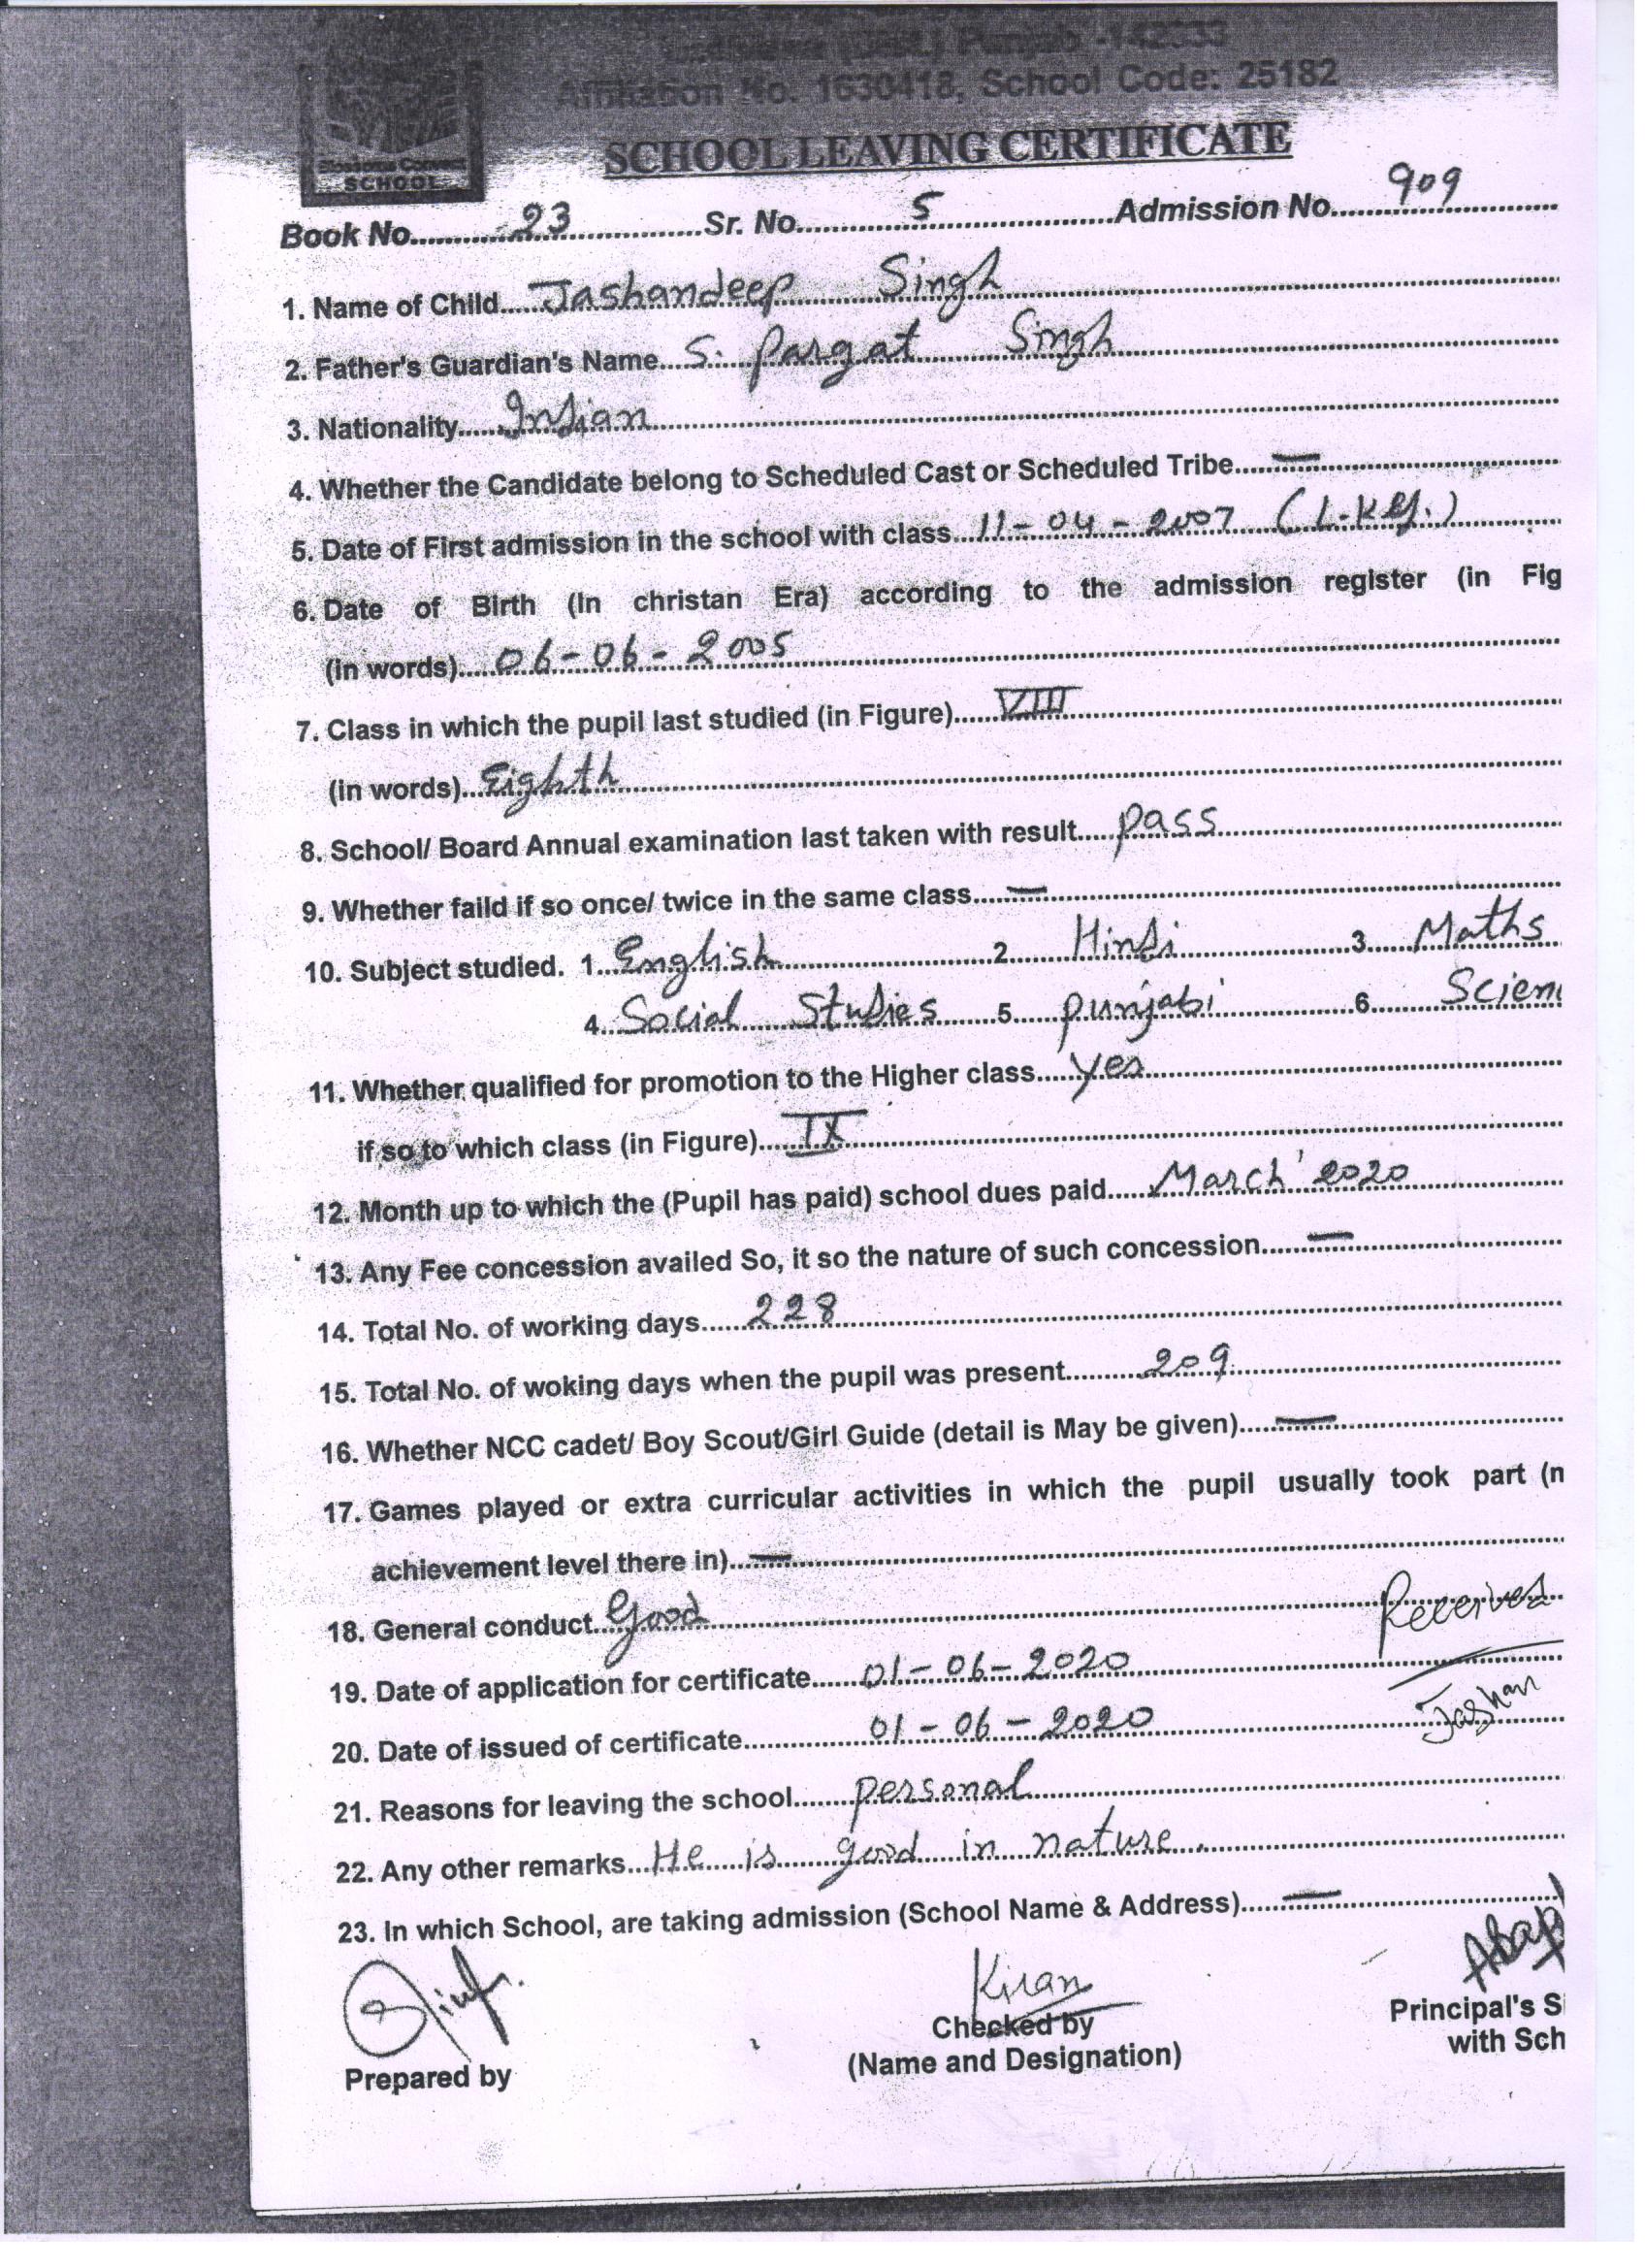 Punjab -142333
Affiliation No. 1630418, School Code: 25182
Blossoms Convent
SCHOOL
SCHOOL LEAVING CERTIFICATE
Book No. 23 Sr. No. 5 Admission No. 909
1. Name of Child Jashandeep Singh
2. Father's Guardian's Name S. Pargat Singh
3. Nationality Indian
4. Whether the Candidate belong to Scheduled Cast or Scheduled Tribe —
5. Date of First admission in the school with class 11-04-2007 (L.KG.)
6. Date of Birth (In christan Era) according to the admission register (in Fig
(in words) 06-06-2005
7. Class in which the pupil last studied (in Figure) VIII
(in words) Eighth
8. School/ Board Annual examination last taken with result pass
9. Whether faild if so once/ twice in the same class —
10. Subject studied. 1. English 2 Hindi 3 Maths
4 Social Studies 5 punjabi 6 Scien
11. Whether qualified for promotion to the Higher class yes
if so to which class (in Figure) IX
12. Month up to which the (Pupil has paid) school dues paid March' 2020
13. Any Fee concession availed So, it so the nature of such concession —
14. Total No. of working days 228
15. Total No. of woking days when the pupil was present 209
16. Whether NCC cadet/ Boy Scout/Girl Guide (detail is May be given) —
17. Games played or extra curricular activities in which the pupil usually took part (n
achievement level there in) —
18. General conduct Good
Received
19. Date of application for certificate 01-06-2020
Jashan
20. Date of issued of certificate 01-06-2020
21. Reasons for leaving the school personal
22. Any other remarks He is good in nature.
23. In which School, are taking admission (School Name & Address) —
Kiran
Prepared by
Checked by
(Name and Designation)
Principal's Si
with Sch